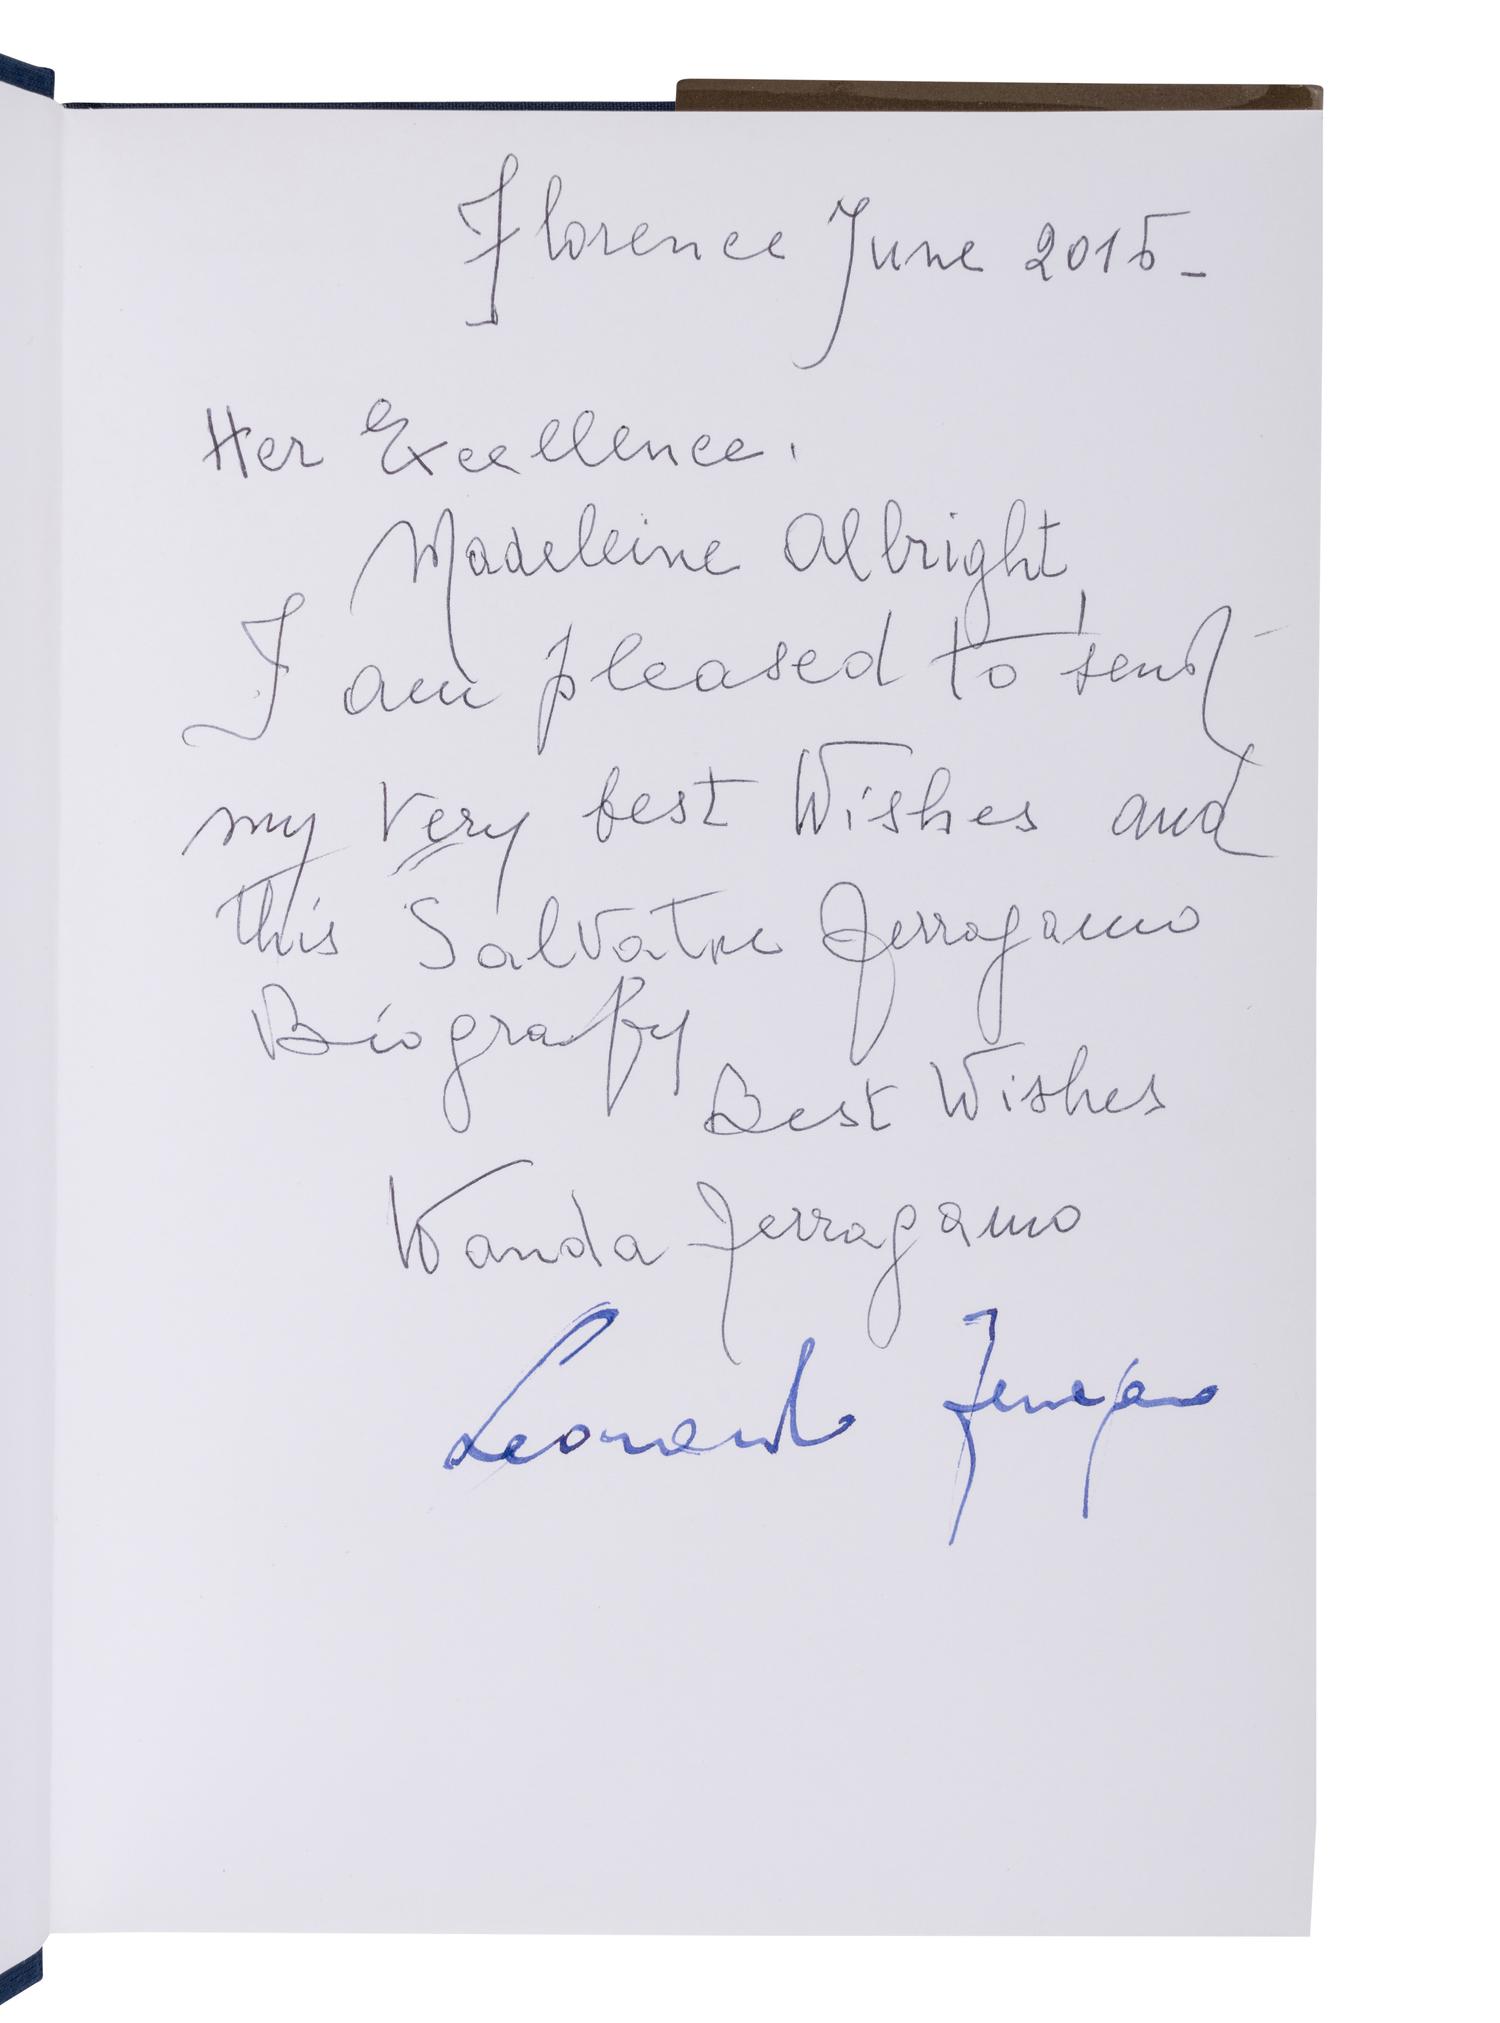 Florence June 2015-
Her Excellence.
Madeleine Albright,
I am pleased to send
my very best Wishes and
this Salvatore Ferragamo
Biografy
Best Wishes
Wanda Ferragamo
Leonardo Ferragamo